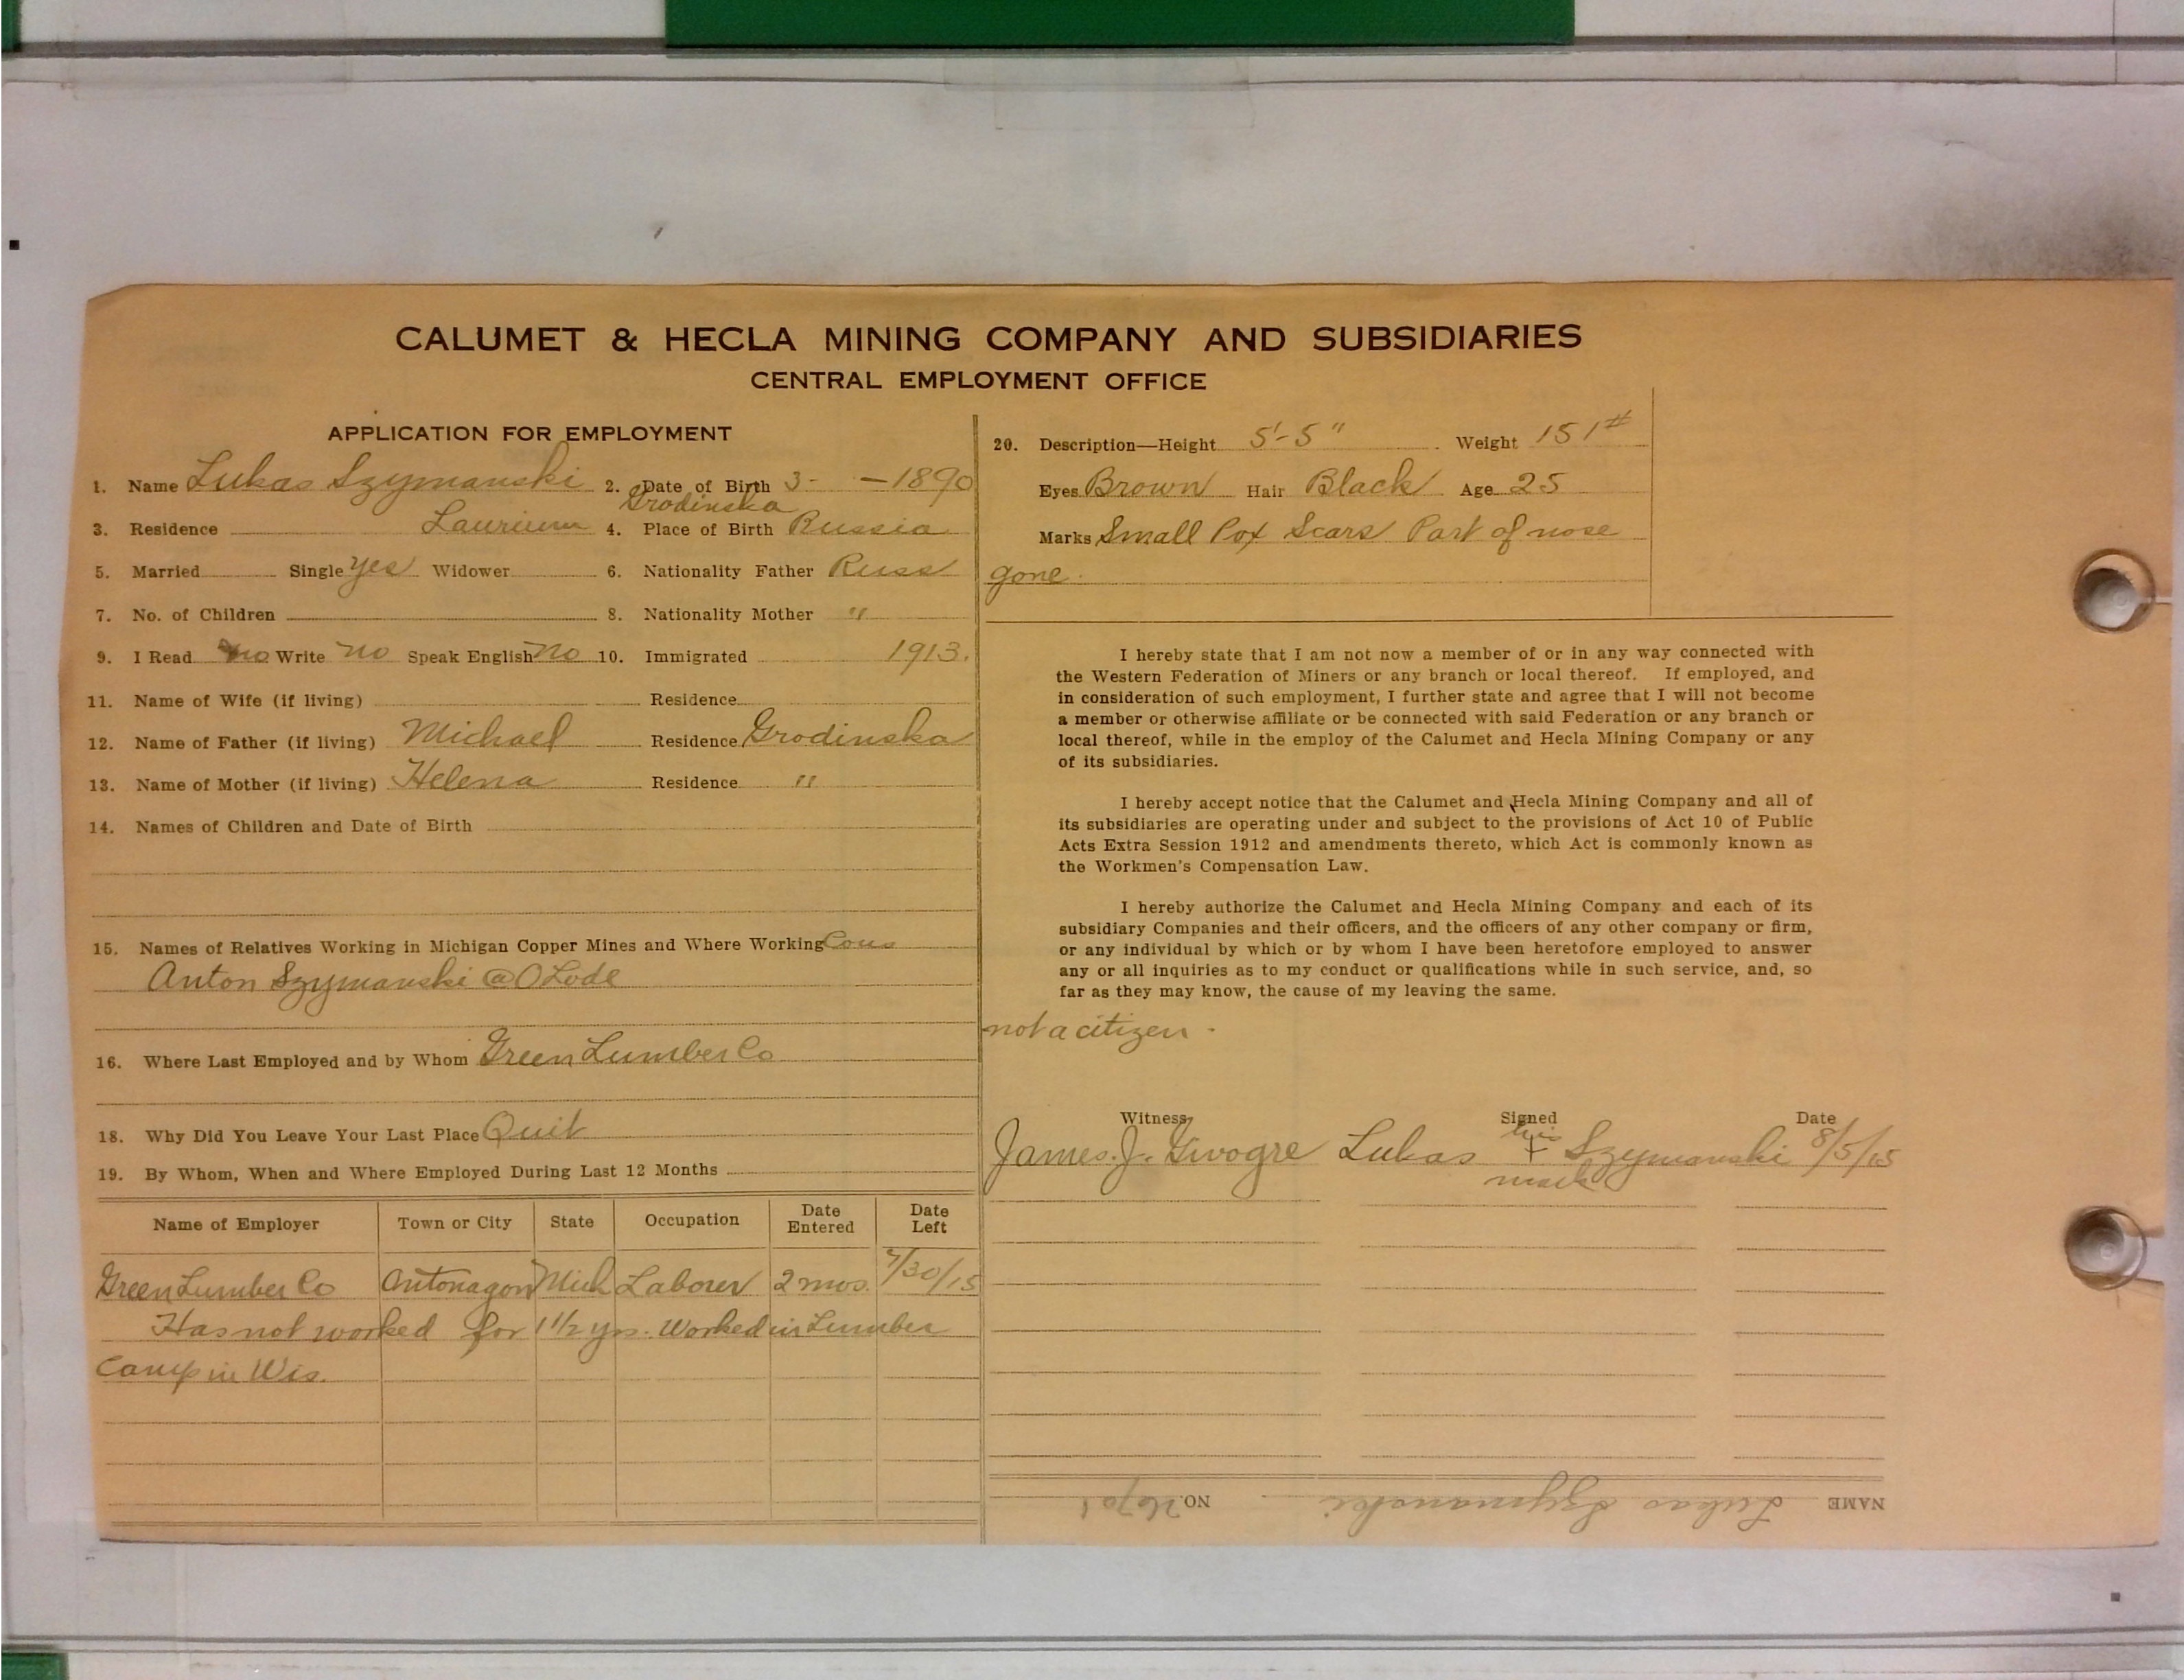 CALUMET & HECLA MINING COMPANY AND SUBSIDIARIES
CENTRAL EMPLOYMENT OFFICE
APPLICATION FOR EMPLOYMENT
1. Name Lukas Szymanski 2. Date of Birth 3- -1890
Grodinska
3. Residence Laurium 4. Place of Birth Russia
5. Married Single yes Widower 6. Nationality Father Russ
7. No. of Children 8. Nationality Mother "
9. I Read no Write no Speak English no 10. Immigrated 1913.
11. Name of Wife (if living) Residence
12. Name of Father (if living) Michael Residence Grodinska
13. Name of Mother (if living) Helena Residence "
14. Names of Children and Date of Birth
15. Names of Relatives Working in Michigan Copper Mines and Where Working Cous
Anton Szymanski @ O Lode
16. Where Last Employed and by Whom Green Lumber Co
18. Why Did You Leave Your Last Place Quit
19. By Whom, When and Where Employed During Last 12 Months
Name of Employer Town or City State Occupation Date Entered Date Left
Green Lumber Co Antonagon Mich Laborer 2 mos. 7/30/15
Has not worked for 1 1/2 yrs. Worked in Lumber
Camp in Wis.
20. Description—Height 5'-5" Weight 151#
Eyes Brown Hair Black Age 25
Marks Small Pox Scars Part of nose
gone.
I hereby state that I am not now a member of or in any way connected with
the Western Federation of Miners or any branch or local thereof. If employed, and
in consideration of such employment, I further state and agree that I will not become
a member or otherwise affiliate or be connected with said Federation or any branch or
local thereof, while in the employ of the Calumet and Hecla Mining Company or any
of its subsidiaries.
I hereby accept notice that the Calumet and Hecla Mining Company and all of
its subsidiaries are operating under and subject to the provisions of Act 10 of Public
Acts Extra Session 1912 and amendments thereto, which Act is commonly known as
the Workmen's Compensation Law.
I hereby authorize the Calumet and Hecla Mining Company and each of its
subsidiary Companies and their officers, and the officers of any other company or firm,
or any individual by which or by whom I have been heretofore employed to answer
any or all inquiries as to my conduct or qualifications while in such service, and, so
far as they may know, the cause of my leaving the same.
not a citizen.
Witness Signed Date
his
James. J. Lukas + Szymanski 8/5/15
mark
NAME Lukas Szymanski NO.